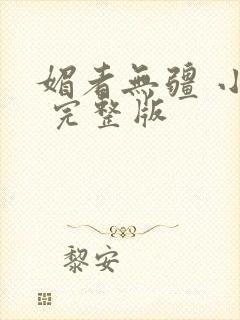 媚者無疆 小
完整版
黎安